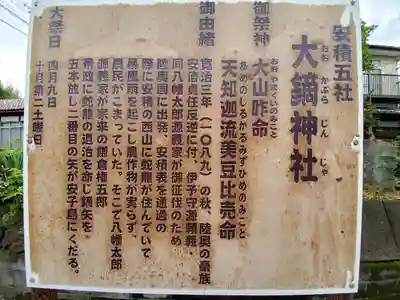 安積五社
大鏑神社
おお かぶら じん じゃ
御祭神
大山咋命
おおやまぐいのみこと
天知迦流美豆比売命
あめのしるかるみずひめのみこと
御由緒
寛治三年（一〇八九）の秋、陸奥の豪族
安倍貞任反逆に付、伊予守源頼義・
同八幡太郎源義家が御征伐のため
陸奥国に出発、安積表を通過の
際に安積の西山に蛇龍が住んでいて
暴風雨を起こし農作物が実らず、
農民がこまっていた。そこで八幡太郎
源義家が家来の鎌倉権五郎
景政に蛇龍の退治を命じ鏑矢を
五本放し二番目の矢が安子島にくだる。
大祭日
四月九日
十月第二土曜日